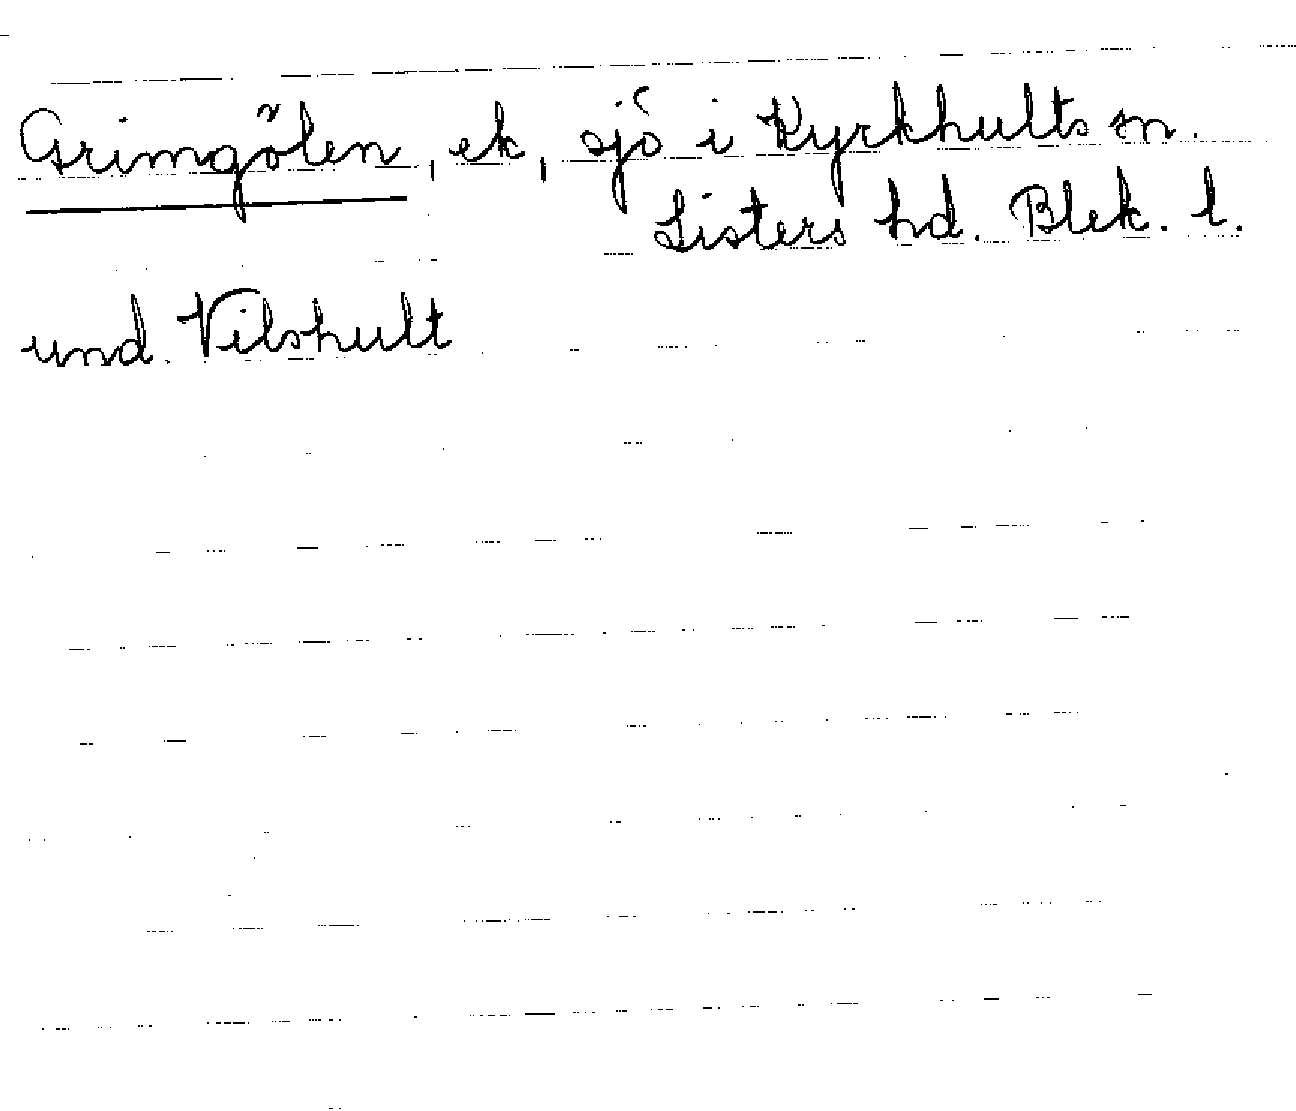 Grimgölen, ek, sjö i Kyrkhults sn.
Listers hd. Blek. l.
und. Vilshult